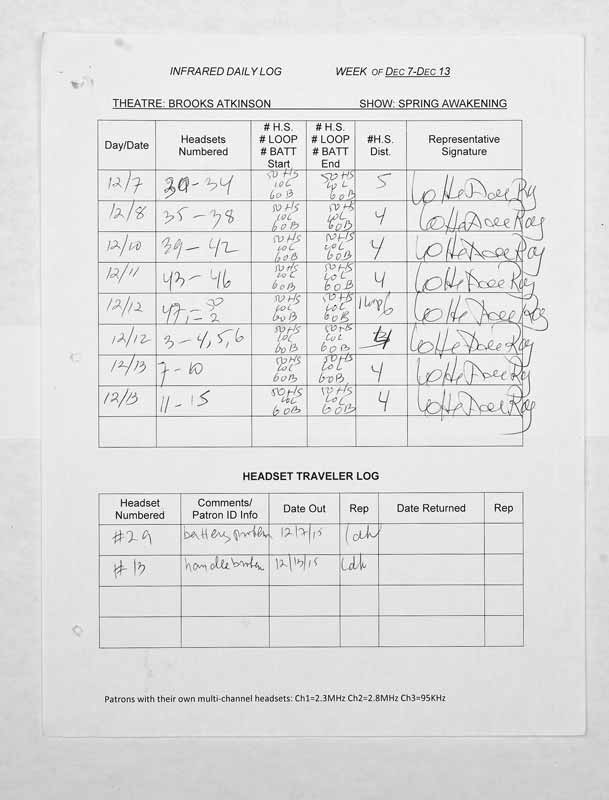 INFRARED DAILY LOG WEEK OF DEC 7-DEC 13
THEATRE: BROOKS ATKINSON SHOW: SPRING AWAKENING
Day/Date Headsets Numbered # H.S. # LOOP # BATT Start # H.S. # LOOP # BATT End #H.S. Dist. Representative Signature
12/7 30-34 50 HS 10L 60B 50 HS 10L 60B 5
12/8 35-38 50 HS 10L 60B 50 HS 10L 60B 4
12/10 39-42 50 HS 10L 60B 50 HS 10L 60B 4
12/11 43-46 50 HS 10L 60B 50 HS 10L 60B 4
12/12 47, 50 HS 10L 60B 50 HS 10L 60B 1 Loop/6
12/12 3-4,5,6 50 HS 10L 60B 50 HS 10L 60B 4
12/13 7-10 50 HS 10L 60B 50 HS 10L 60B 4
12/13 11-15 50 HS 10L 60B 50 HS 10L 60B 4
HEADSET TRAVELER LOG
Headset Numbered Comments/ Patron ID Info Date Out Rep Date Returned Rep
#29 battery 12/7/15 ldh
#13 handle broken 12/13/15 ldh
Patrons with their own multi-channel headsets: Ch1=2.3MHz Ch2=2.8MHz Ch3=95KHz